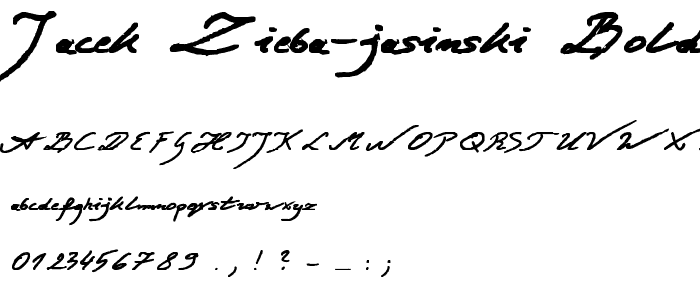 Jacek Zieba-jasinski Bold
ABCDEFGHIJKLMNOPQRSTUVWX
abcdefghijklmnopqrstuvwxyz
0123456789 . , ! ? - _ : ;